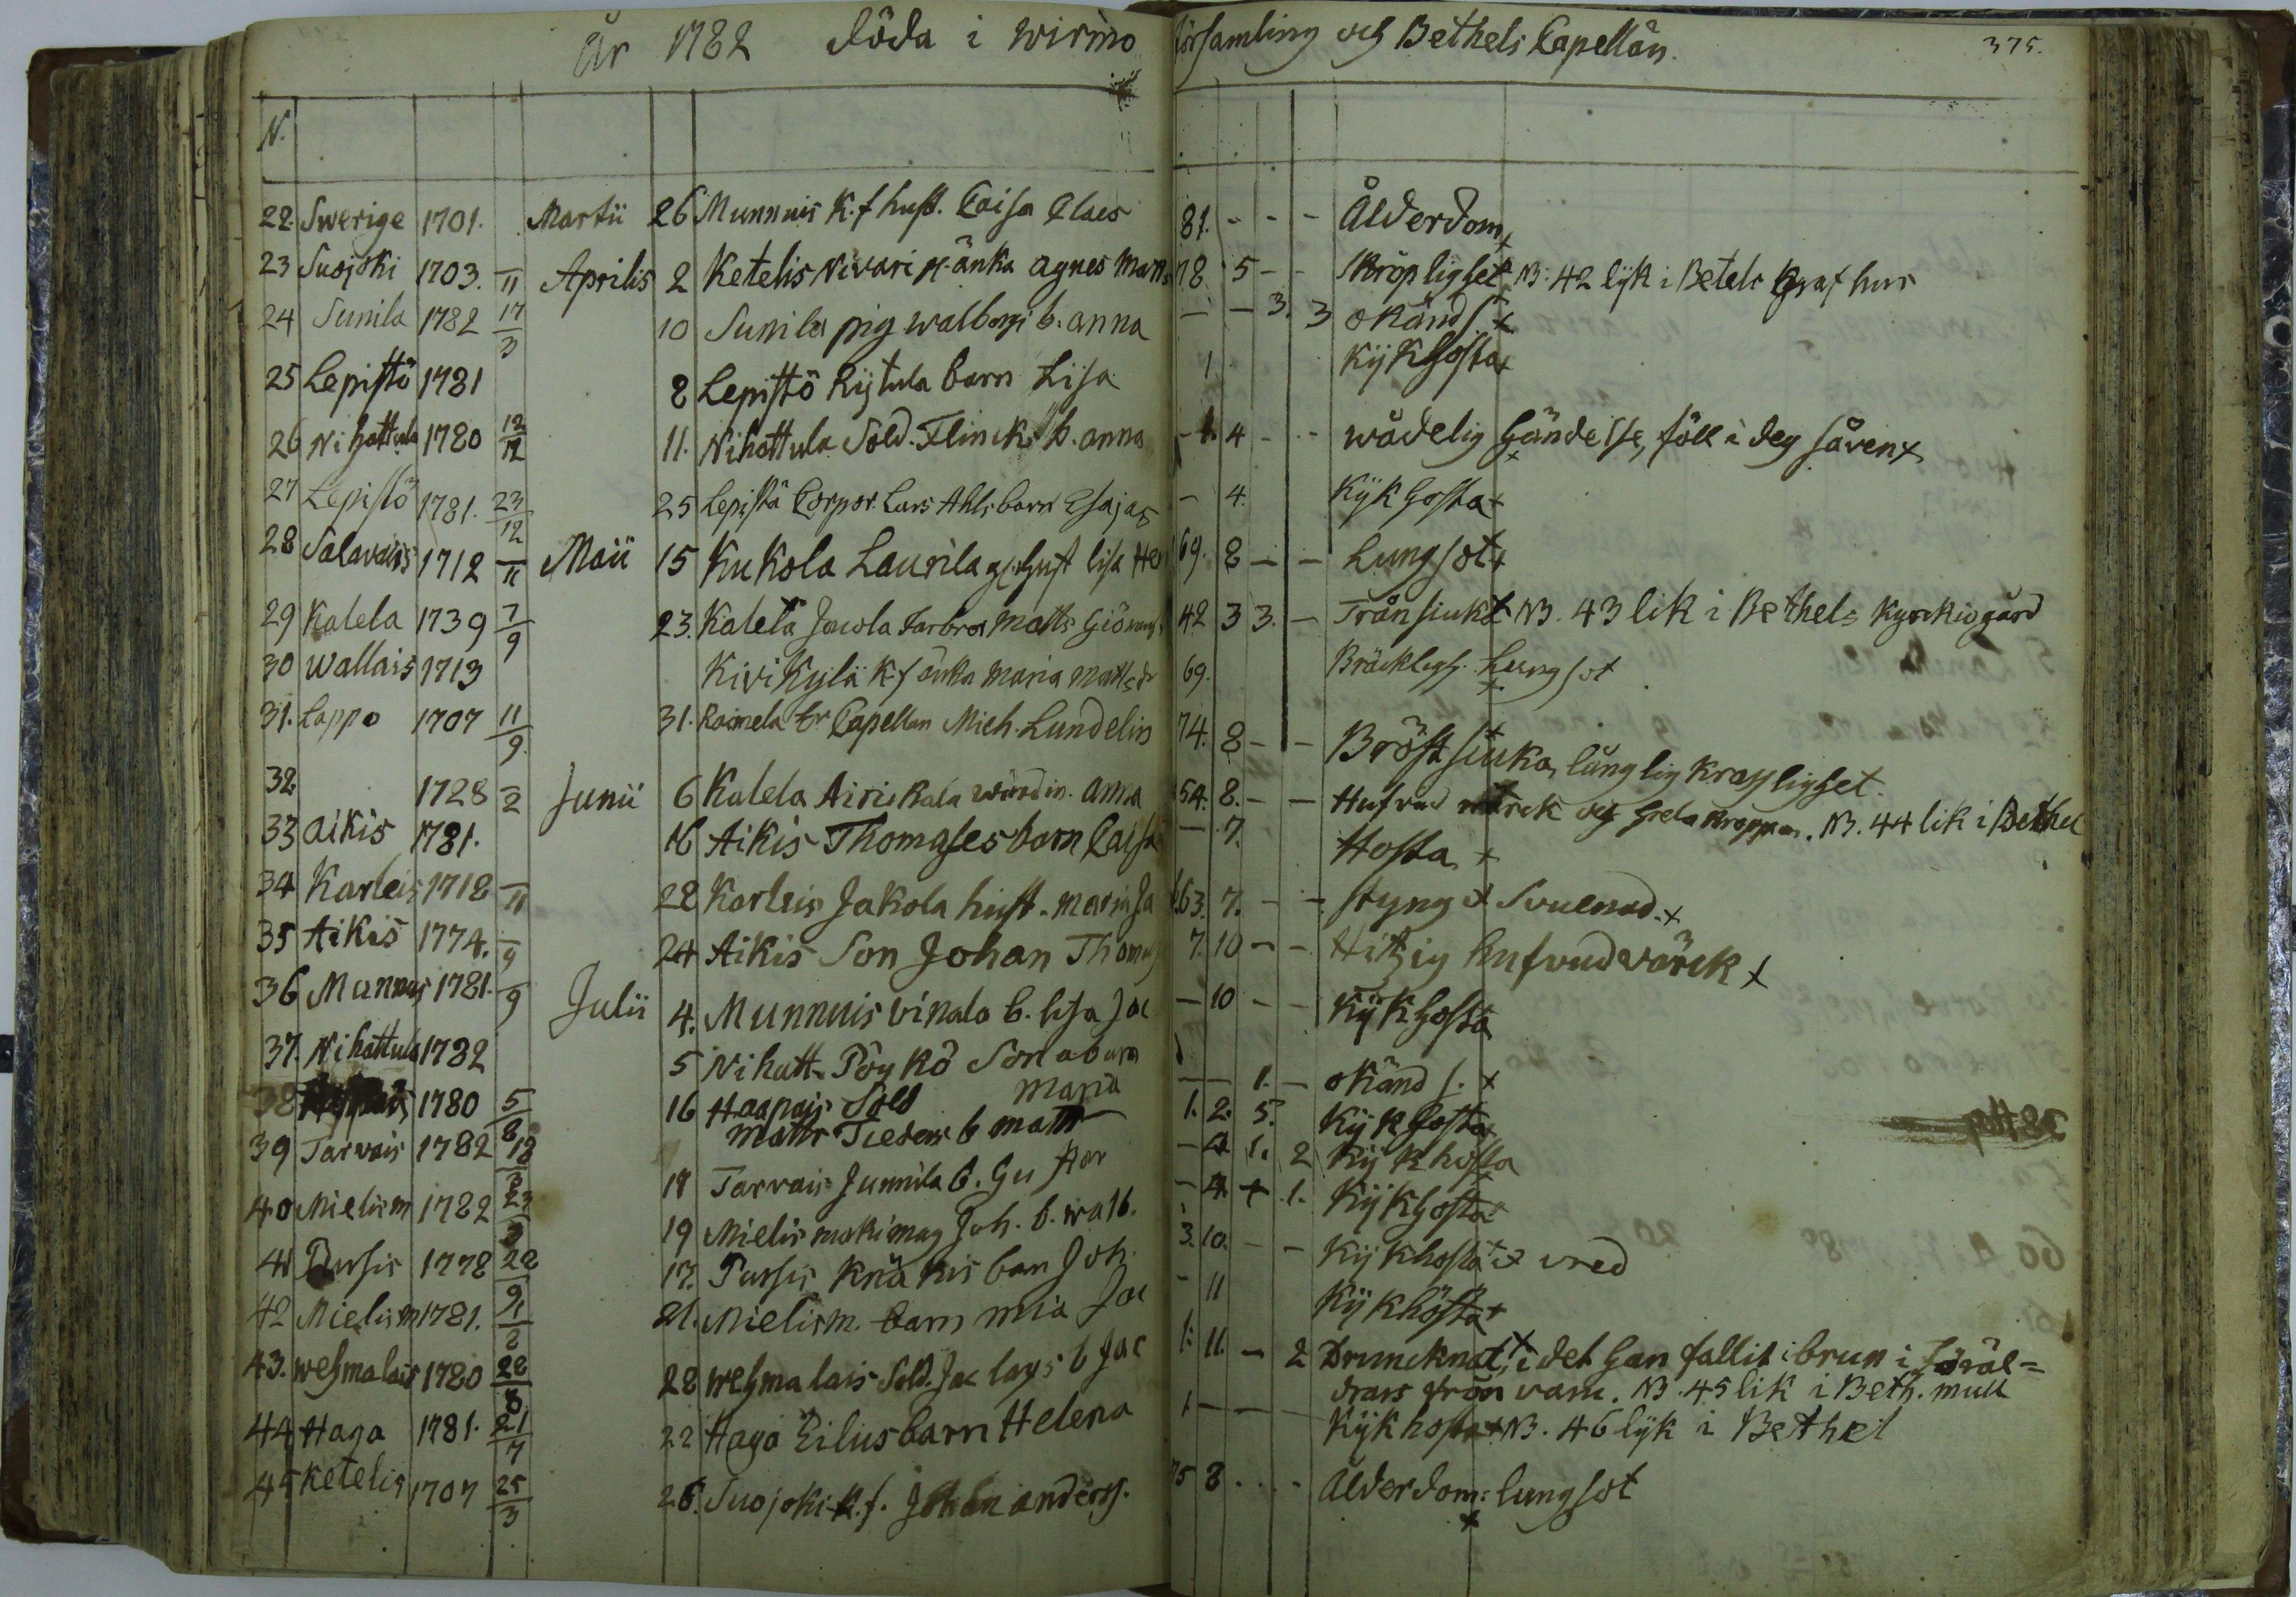 År 1782 döda i Wirmo församling och Bethels Capellän. 375.
N.
22. Swerige 1701. Martii 26 Munnuis K.f hust. Caisa Claes 81. - - - Ålderdom
23 Suojoki 1703. /11 Aprilis 2 Ketelis Nivari g. änka agnes Matts 78. 5 - - Skröplighet NB. 42 lyk i Betels graf hus
24 Sunila 1782 17/3 10 Sunila pig walborgi b. anna - - 3. 3 okänd s. x
25 Lepistö 1781 8 Lepistö Kijtula barn Lisa 1 Kijkhosta x
26 Nihattula 1780 12/12 11. Nihattula Sold. Flinck b. anna 1. 4 - - wådelig händelse, föll i deg såen x
27 Lepistö 1781. 23/12 25 Lepistö Corpor. Lars Ahls barn Esajas - 4. Kijkhosta x
28 Salavais 1712 /11 Maii 15 Kukola Laurila gl. hust lisa Hen 69. 8 - - Lungsot x
29 Kalela 1739 7/9 23. Kalela Jacola Farbror Matts 42 3 3. - Trånsiuk x NB. 43 lik i Bethels kyrkiogård
30 Wallais 1713 Kivikylä K.f änka Maria Mattsdr 69. Bräckligh. Lungsot
31. Lappo 1707 11/9. 31. Raimela Hr Capellan Mich. Lundelin 74. 8 - - Bröstsiuka, långlig krasslighet.
32. 1728 /2 Junii 6 Kalela Airikkala wärdin. anna 54. 8. - - Hufvud wärck och hela kroppen. NB. 44 lik i Bethel
33 Aikis 1781. 16 Aikis Thomases barn Caisa - 7. Hosta x
34 Karleis 1718 /11 28 Karleis Jakola hust. Maria Ja 63. 7. - - Styng & Svulnad. x
35 Aikis 1774. /9 24 Aikis Son Johan Thomas 7. 10 - - Hitzig hufvudvärck x
36 Mannus 1781. /9 Julii 4. Munnuis vinala b. lisa Jac - 10 - - Kijkhosta
37. Nihattula 1782 5 Nihatt. Pöykö Sona barn Maria - - 1. - okänd s. x
38 1780 5/8 16 Haapais Sold Matts Tieders b Matts 1. 2. 5. Kijkhosta
39 Tarvais 1782 18/3 18 Tarvais Junnila b. Gustav - 4 1. 2 Kijkhosta
40 Mielism 1782 23/3 19 Mielismäki mag Joh. b. walb. - 4. + 1. Kijkhosta
41 Pursis 1778 28/9 17. Pursis Knäkis barn Joh. 3. 10. - - Kijkhosta x & vred
42 Mielism 1781. 1/8 21. Mielism. barn Mia Jac - 11 Kijkhosta x
43. Wehmalais 1780 28/8 28 Wehmalais Sold. Jac lags b Jac 1: 11. - 2 Druncknat, i det han fallit i brun i Föräl=
drars frånvaru. NB. 45 lik i Beth. mull
44 Haga 1781. 21/7 22 Haga Eilus barn Helena 1 - - - Kijkhosta x NB. 46 lyk i Bethel
45 Ketelis 1707 25/3 26. Suojoki K.f. Johan anderss. 75 8 . . - Ålderdom: lungsot